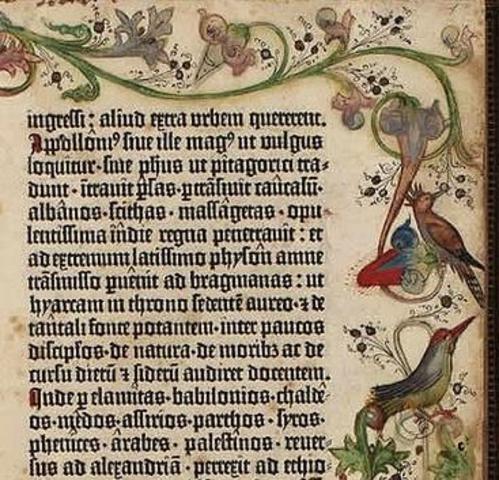 ingressi : aliud extra urbem quererent.
Appollôniꝰ siue ille magꝰ ut vulgus
loquitur · siue ph̄us ut pitagorici tra⸗
dunt · ītrauit p̄sas · ꝑtrāsiuit caūcasū ·
albânos · scithas · massâgetas · opu
lentissima īndie regna penetrauit : et
ad extremum latissimo physôn amne
trāsmisso ꝑuēnit ad bragmanas : ut
hyarcam in throno sedentē aureo · ⁊ de
tantali fonte potantem · inter paucos
discip̄los · de natura · de moribꝫ ac de
cursu dierū ⁊ siderū audiret docentem.
Inde ꝑ elamitas · babilonios · chaldê⸗
os · mêdos · assirios · parthos · syros ·
phenices · ârabes · palestînos · reuer⸗
sus ad alexandriā · perrexit ad ethio⸗